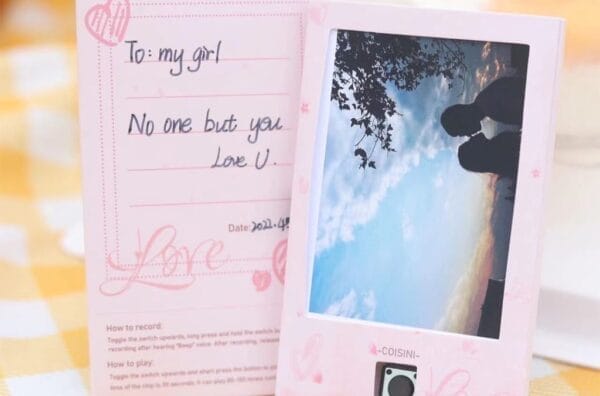 To: my girl
No one but you
Love U.
Date: 2022.4
Love
How to record:
Toggle the switch upwards, long press and hold the switch button
recording after hearing "Beep" voice. After recording, release
How to play:
Toggle the switch upwards and then short press the button to
time of the ring is 30 seconds. It can play 80-100 times
-COISINI-